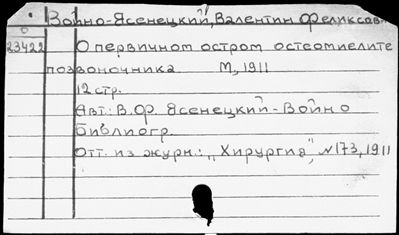 Войно-Ясенецкий, Валентин Феликсов
О
23422 О первичном остром остеомиелите
позвоночника. М, 1911
12 стр.
Авт: В.Ф. Ясенецкий-Войно
Библиогр.
Отт. из журн.: „Хирургия", №173, 1911